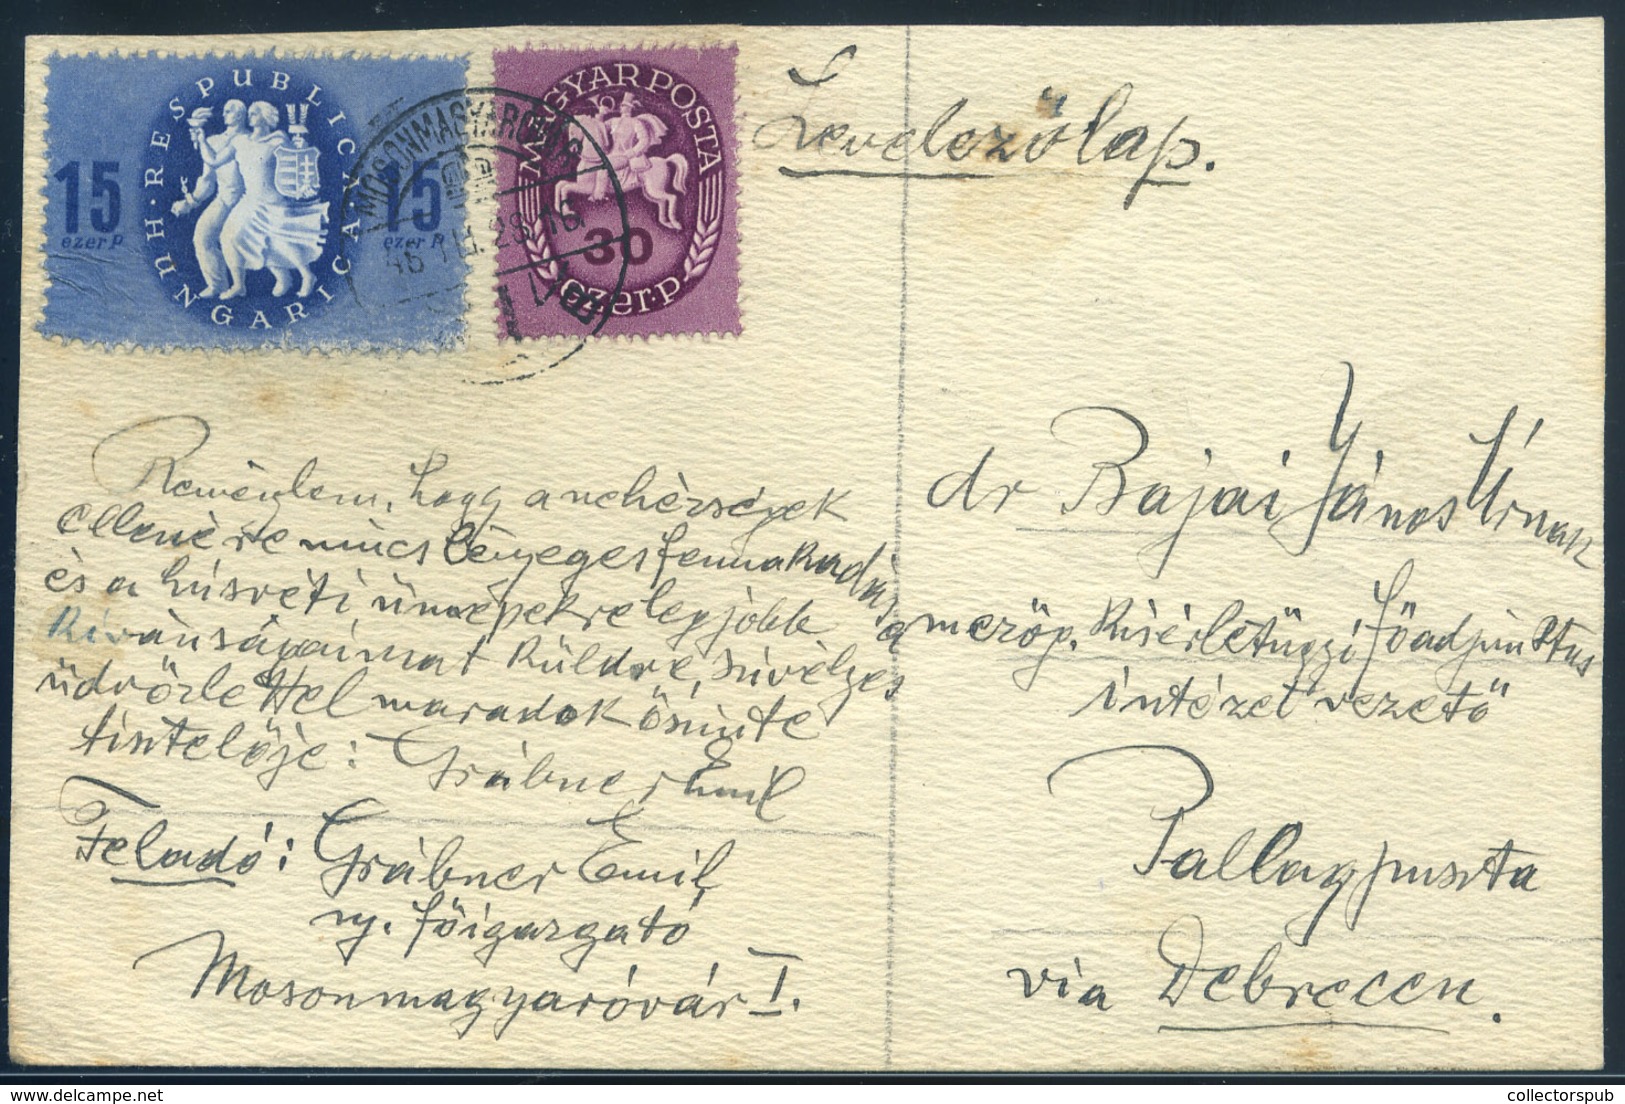 RESPUBLICA HUNGARICA
15 ezer P
15 ezer P
MAGYAR POSTA
30
ezer P
MOSONMAGYARÓVÁR
46 III. 29. 16
Levelezőlap.
Reméylem, hogy a nehézségek
ellenére nincs lényeges fennakadás
és a húsvéti ünnepekre legjobb
kivánságaimat küldve, szivélyes
üdvözlettel maradok őszinte
tisztelője: Grábner Emil
Feladó: Grábner Emil,
ny. főigazgató
Mosonmagyaróvár I.
dr Bajai János Úrnak
a mezőg. Kisérletügyi főadjunktus
intézetvezető
Pallagpuszta
via Debrecen.
collectorspub